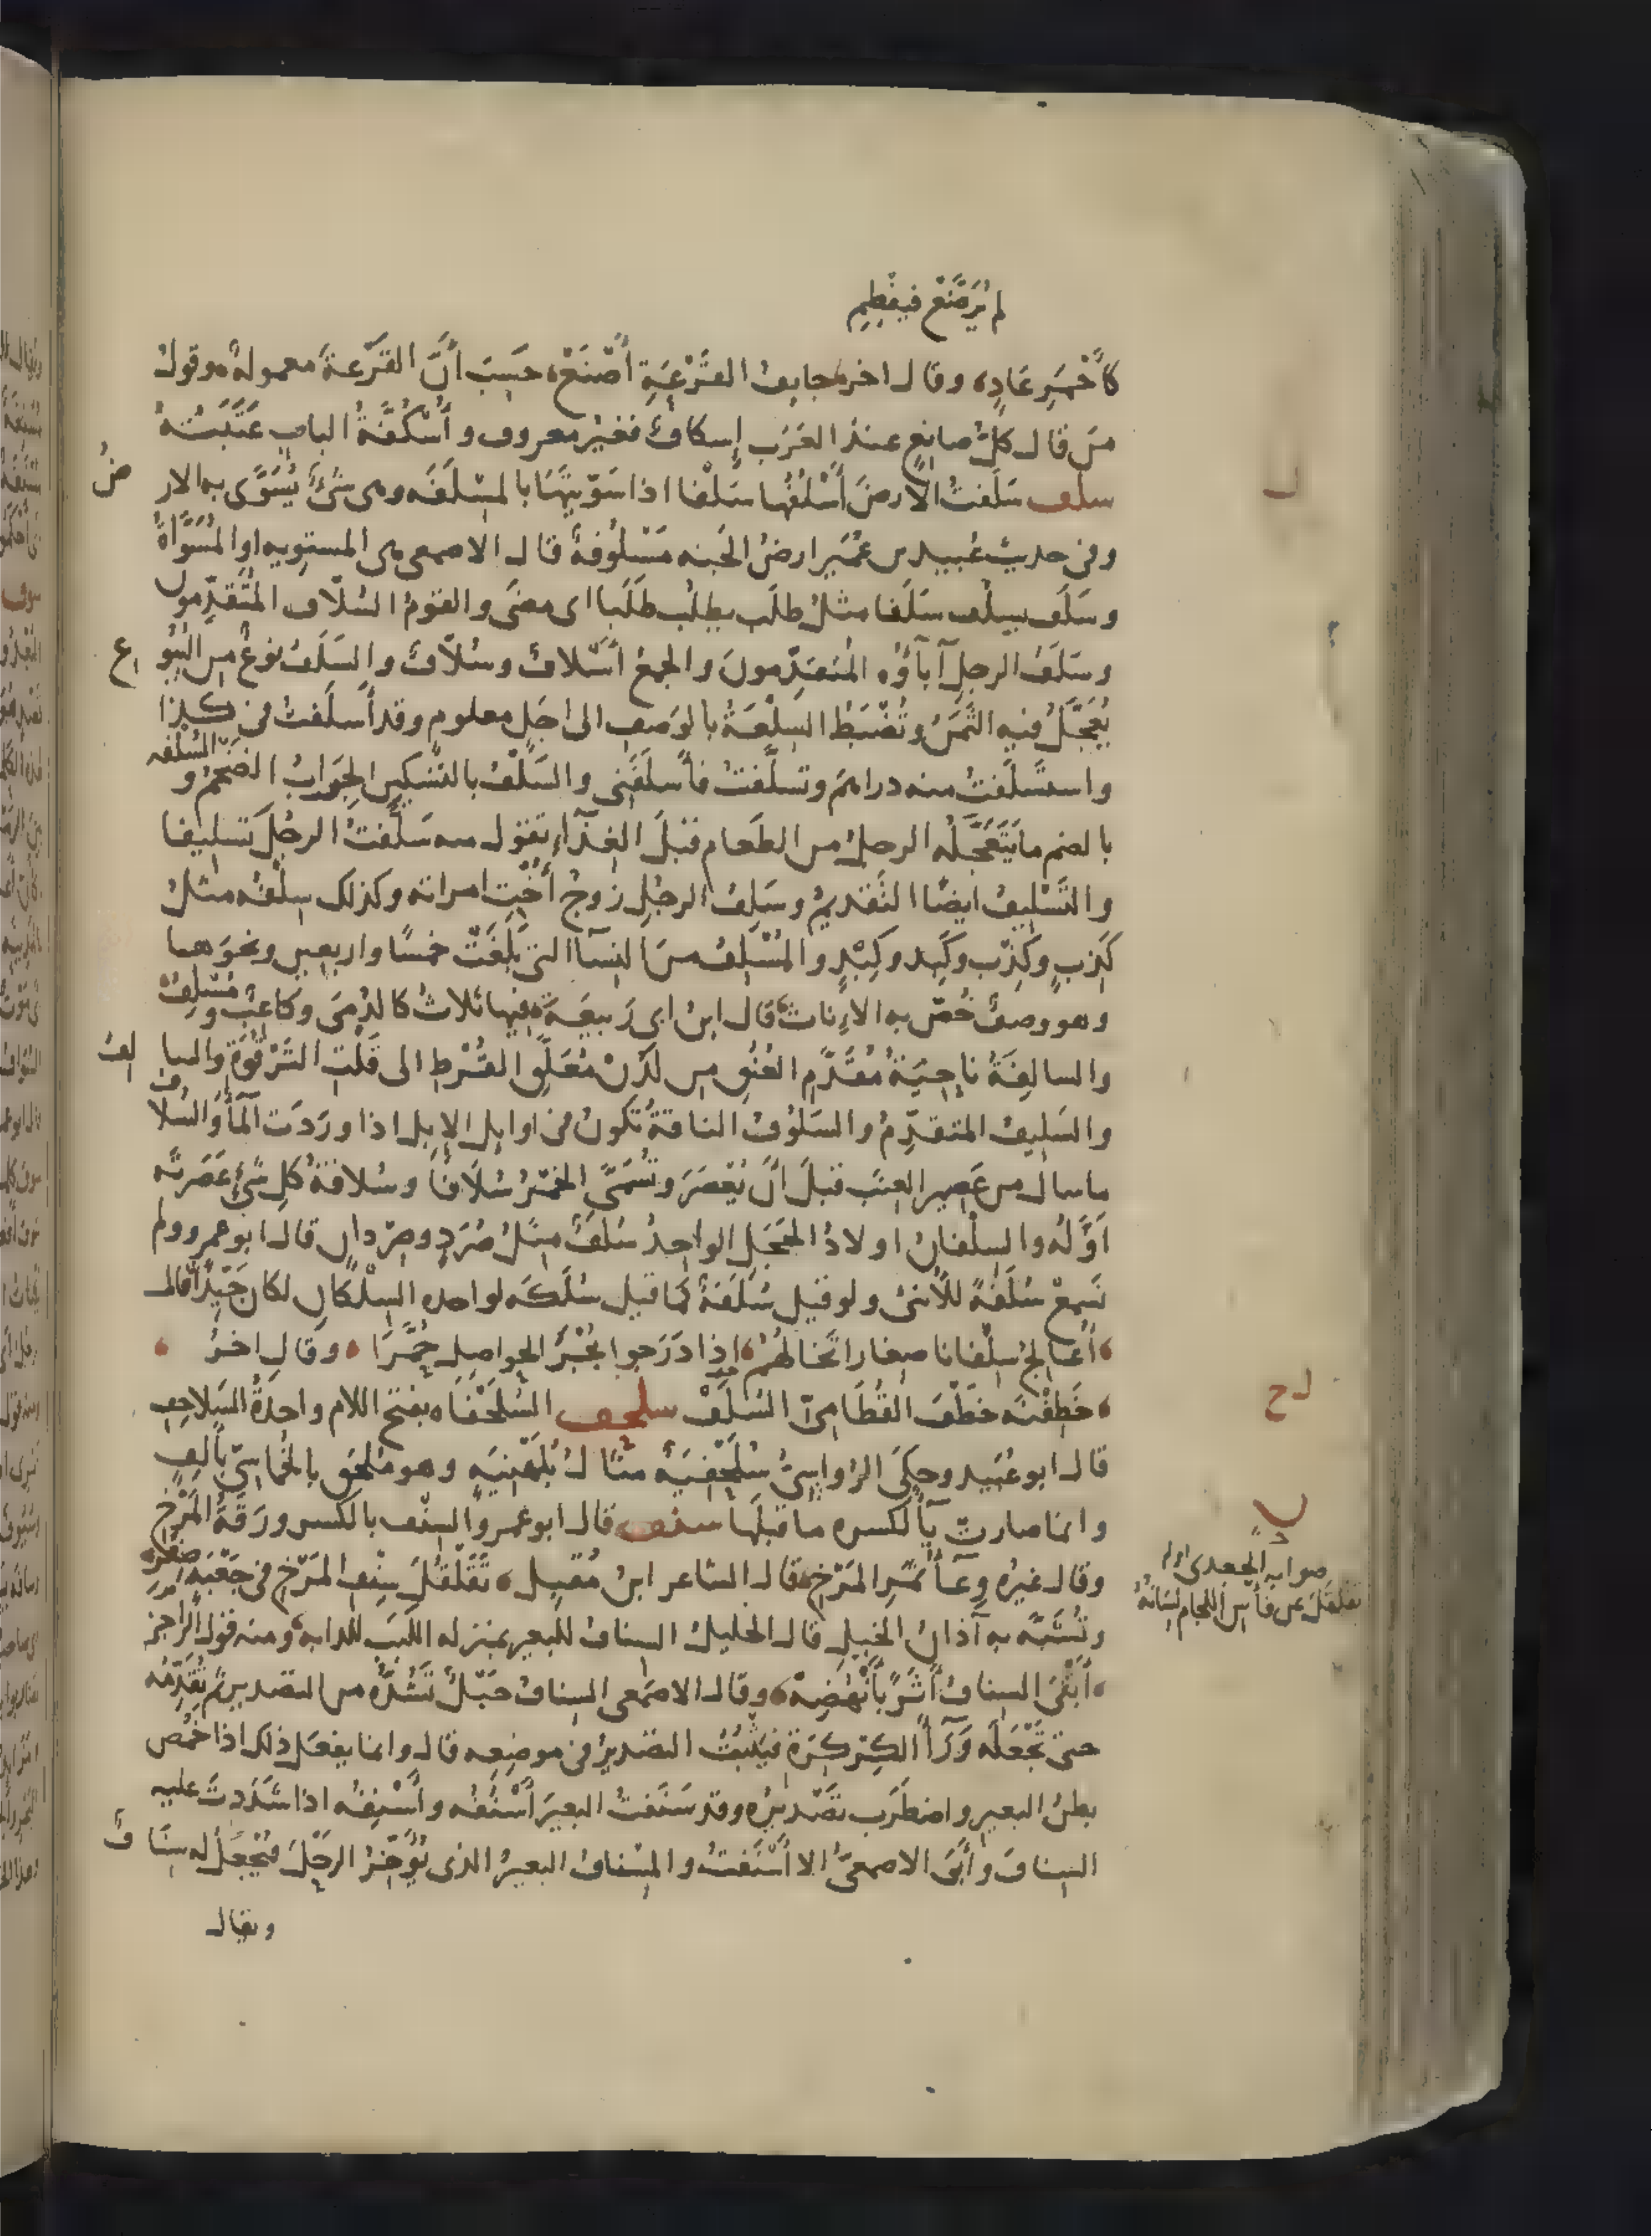 لم تُرضَع فتفطم
كأَحْمَرِ عَادٍ، وقال اخر جايف القَرْعَةِ أَصْنَعُ، حَسِبَ أَنَّ القَرْعَةَ معمولةٌ، وقول
من قال كلّ صانع عند العَرَب إسكافٌ فغيرُ معروف وأُسْكُفَّةُ الباب عَتَبَتُه
سلف سَلَفتُ الارضَ أَسْلُفُها سَلْفا اذا سَوَّيْتَهَا بالمِسْلَفَه وهي شىءٌ يُسَوَّى به الارضُ
وفى حديث عُبيد بن عُمَير ارضُ الجنه مَسْلُوفةٌ قال الاصمعى هى المستويه او المُسَوَّاةُ
وسَلَف يسلُف سَلَفا مثلُ طلَب يطلُب طَلَبا اى مضَى والقومُ السُلّاف المُتَقدِّمون
وسَلَفُ الرجل آبآؤُه المُتَقدِّمونَ والجمعُ أَسْلافٌ وسُلّافٌ والسَلَفُ نوعٌ من البُيُوع
يُعَجَّلُ فيه الثَمَنُ وتُضْبَطُ السِلْعَةُ بالوَصف الى اجَل معلوم وقد أَسلَفتُ فى كذا
واستَسْلَفتُ منه دراهمَ وتسلَّفتُ فأَسلَفَنى والسَلْفُ بالتسكين الجِرَابُ الضَخْمُ والسُلْفَه
بالضم ما يَتَعَجَّلُه الرجلُ من الطعام قبلَ الغَدَآءِ تقول منه سَلَّفتُ الرجُلَ تسليفا
والتَسْلِيفُ ايضًا التَقديمُ وسَلِفُ الرجُلِ زوجُ أُخْتِ امراته وكذلك سِلْفُه مثلُ
كَذِبٍ وكِذْب وكَبِد وكِبْدٍ والمُسْلِفُ منَ النسآ التى بَلَغَتْ خمسًا واربعين ونحوَها
وهو وصفٌ خُصّ به الاناث قال ابن ابى رَبيعَة فيها ثلاثٌ كالدُمَى وكاعِبٌ ومُسْلِفُ
والسالِفَةُ ناحِيَةُ مُقَدَّمِ العُنُق من لَدُنْ مُعَلَّقِ القُرْطِ الى قَلْتِ التَرْقُوَةِ والسالفُ
والسَلِيفُ المتقدِّمُ والسَلُوفُ الناقةُ تكونُ فى اوايل الإبل اذا ورَدَت المآءَ والسُلَافُ
ما سال من عَصِير العِنَب قبلَ أَنْ يُعْصَرَ وتُسَمَّى الخَمْرُ سُلَافًا وسُلَافةُ كلِ شىءٍ عَصَرتَه
اَوَّلُه والسِلْفانُ اولادُ الحَجَلِ الواحِدُ سُلَفٌ مثلُ صُرَدٍ وصِرْدانٍ قال ابو عمرو ولم
نَسمعْ سُلَفةً للأُنثى ولو قيل سُلَفَةٌ كما قيل سُلَكَه لواحده السِلْكانِ لكان جَيّدًا قال
أُعَالِجُ سِلْفانا صِغارا تَخالُهُمْ اذا دَرَجوا بُجْرَ الحواصِلِ حُمَّرَا وقال اخرُ
خَطِفْنَه خَطْفَ القُطَامِىّ السُلَفْ سلحف السُلَحْفَاه بفتح اللام واحدةُ السَلاحِفِ
قال ابو عُبَيد وحكى الرُواسِىُّ سُلَحْفِيَةٌ مثالُ بُلَهْنِيَةٍ وهو مُلحَق بالخُماسِىّ بأَلِفٍ
وانما صارت يآءً لكسره ما قبلَها سنف قال ابو عمرو السِنْف بالكسر ورَقَةُ المَرْخِ
وقال غيرُه وِعآءُ ثَمَرِ المَرْخِ قال الشاعر ابنُ مُقبِل تَقَلْقُلَ سِنْفِ المَرْخِ فى جَعْبَةٍ صِفْرِ
وتُشَبَّه به آذانُ الخيلِ قال الخليلُ السِنافُ للبعير بمنزله اللَبَبِ للدابه ومنه قولُ الراجز
أَبْقَى السِنافُ أَثَرًا بأَنْهُضِهْ وقال الاصمعى السِنافُ حَبْلٌ تَشُدُّه من التصدير ثم تُقَدِّمُه
حتى تَجْعَلَه ورَآءَ الكِركِرَةِ فيَثبُتُ التصديرُ فى موضِعِه قال وانما يفعَل ذلك اذا خَمُص
بطنُ البعير واضطَرَب تَصْديرُه وقد سَنَفتُ البعيرَ أَسْنُفُه وأَسْنِفُه اذا شَدَدتَ عليه
السِنافَ وأَبَى الاصمعىُّ الا أَسْنَفتُ والمِسْنافُ البعيرُ الذى يُؤَخِّرُ الرحْلَ فيُجْعَلُ له سِنَافٌ
ويقال
ل
ل ح
صوابه الجعدى اوله
تقلقل عن فأس اللجام لسانُه